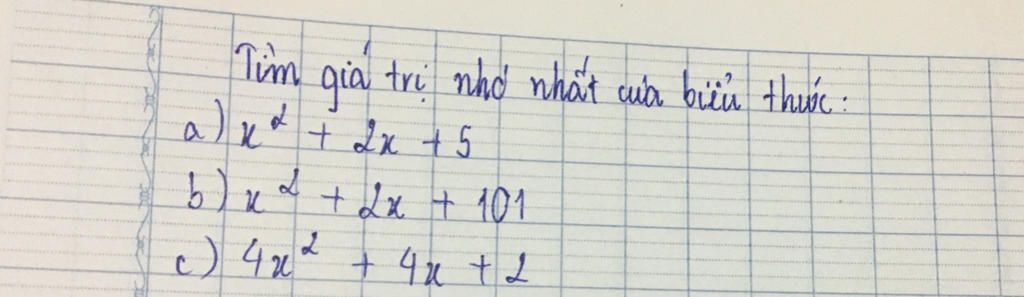 Tìm giá trị nhỏ nhất của biểu thức:
a) x² + 2x + 5
b) x² + 2x + 101
c) 4x² + 4x + 2